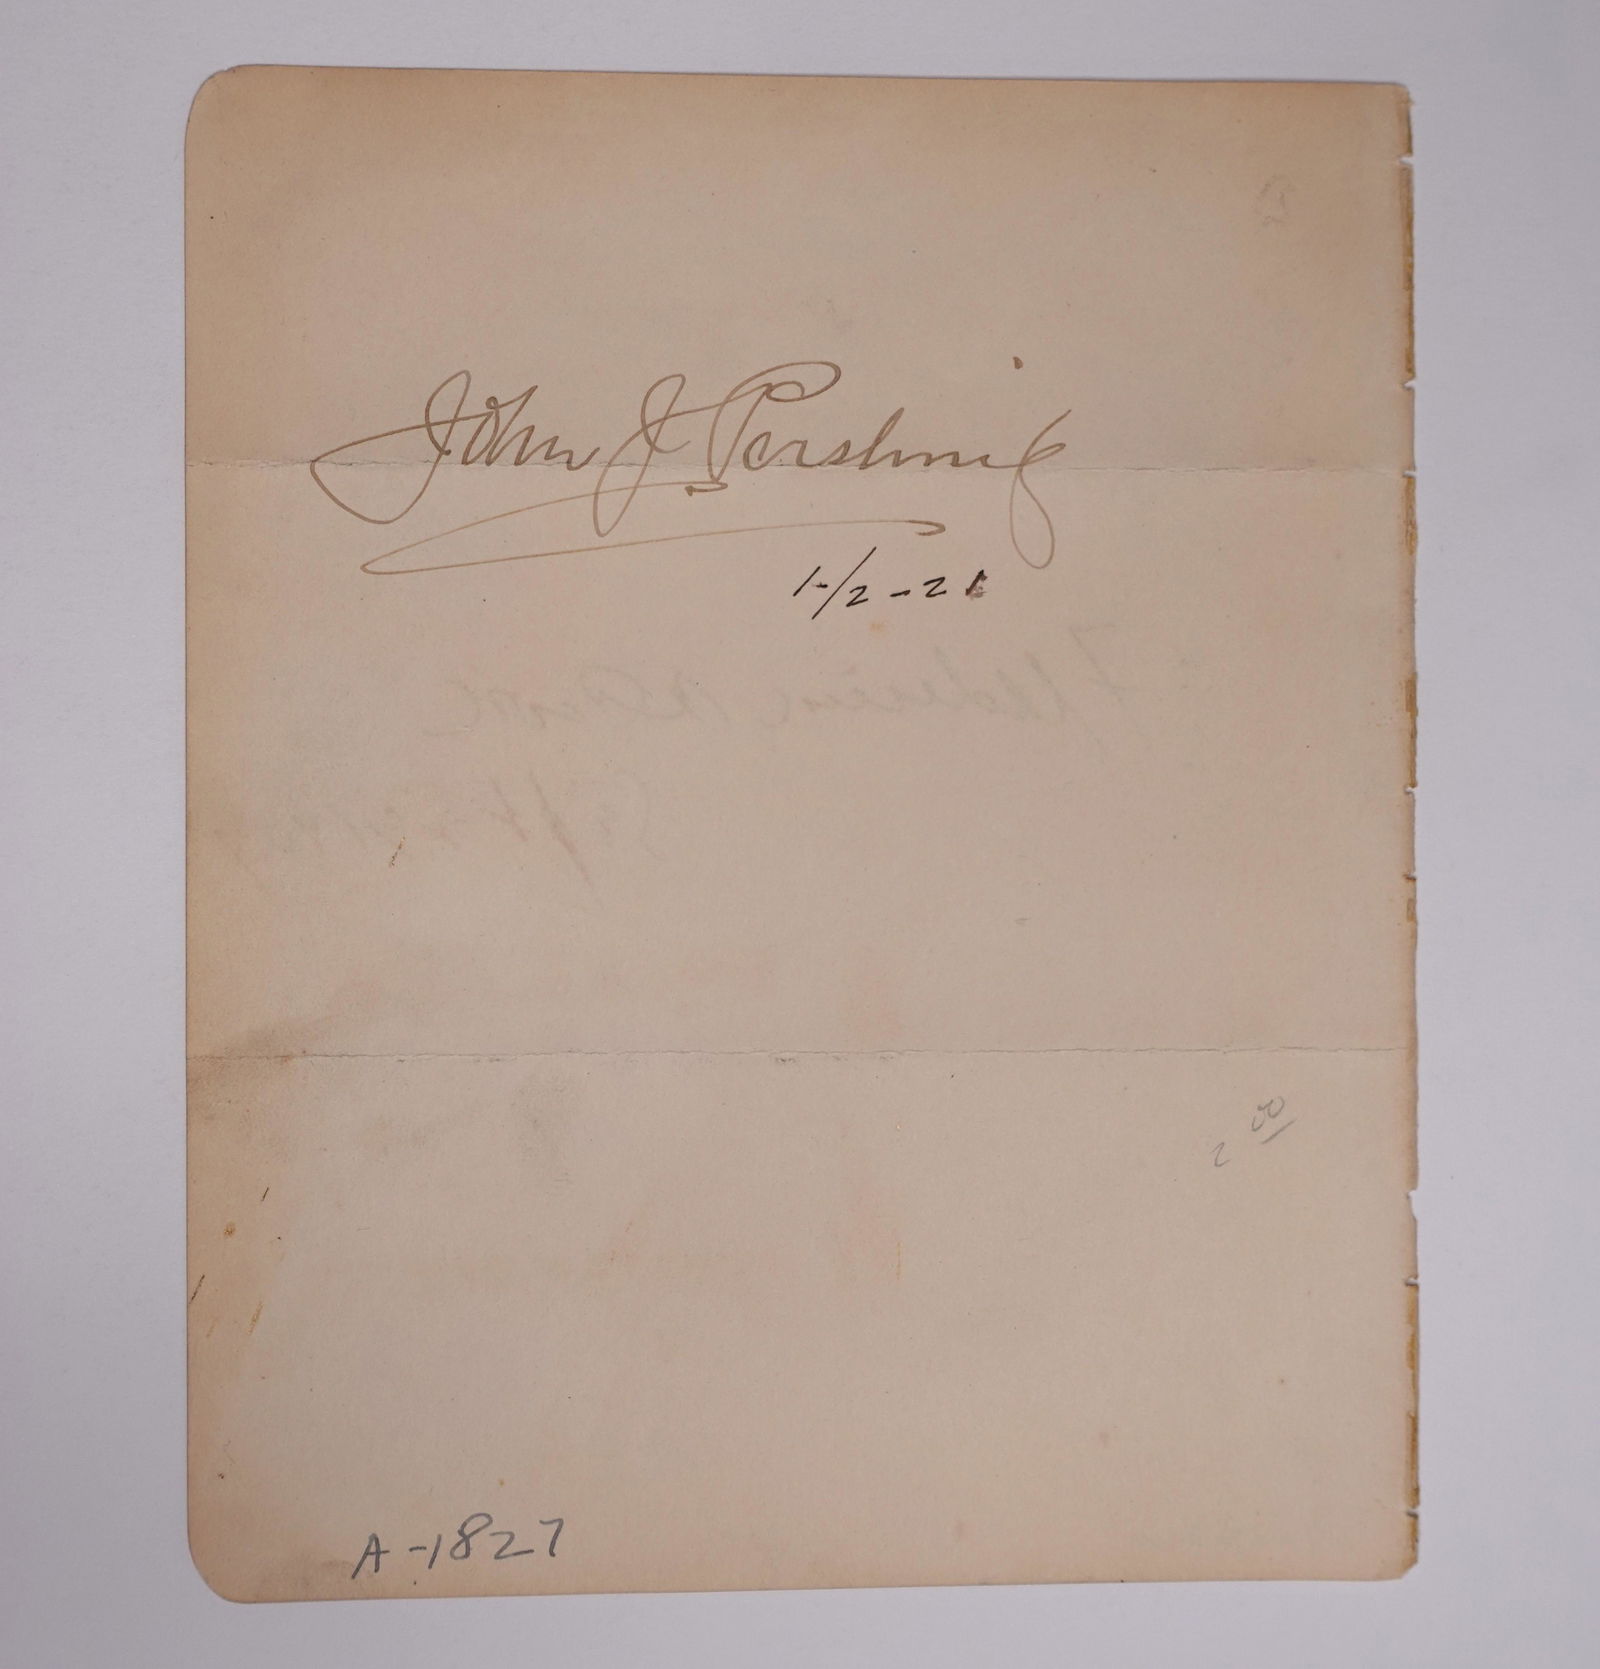 John J. Pershing
1-/2-21
2 00
A-1827